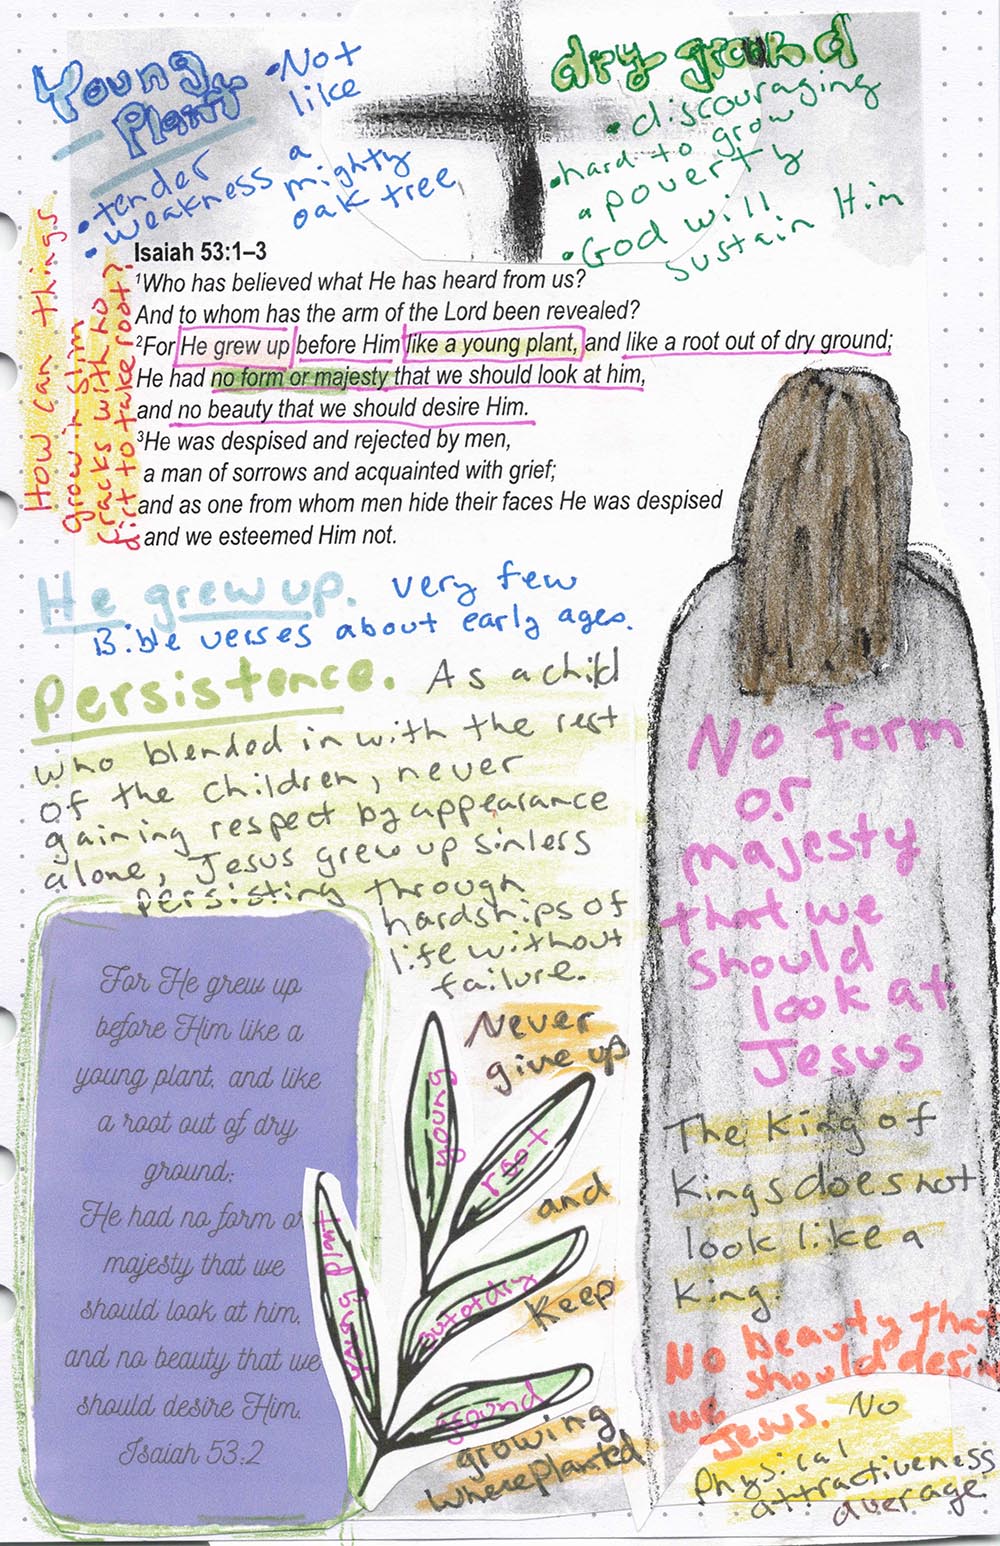 Young
Plant
• Not
like
a
mighty
oak tree
• tender
• weakness
dry ground
• discouraging
• hard to grow
a poverty
• God will
sustain Him
How can things
grow in slim
cracks with no
dirt to take root?
Isaiah 53:1–3
1Who has believed what He has heard from us?
And to whom has the arm of the Lord been revealed?
2For He grew up before Him like a young plant, and like a root out of dry ground;
He had no form or majesty that we should look at him,
and no beauty that we should desire Him.
3He was despised and rejected by men,
a man of sorrows and acquainted with grief;
and as one from whom men hide their faces He was despised
and we esteemed Him not.
He grew up. very few
Bible verses about early ages.
Persistence. As a child
who blended in with the rest
of the children, never
gaining respect by appearance
alone, Jesus grew up sinless
persisting through
hardships of
life without
failure.
For He grew up
before Him like a
young plant, and like
a root out of dry
ground;
He had no form or
majesty that we
should look at him,
and no beauty that we
should desire Him.
Isaiah 53:2
young
root
young plant
out of dry
ground
Never
give up
and
Keep
growing
where planted
No form
or
majesty
that we
should
look at
Jesus
The King of
Kings does not
look like a
king.
No beauty that
we should desire
Jesus. No
Physical
attractiveness
average